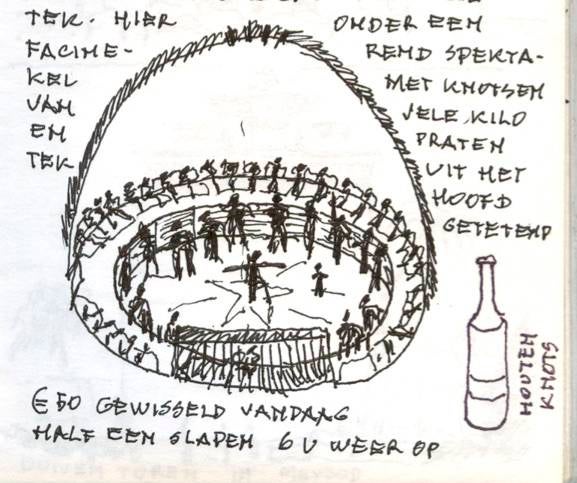 TEK. HIER ONDER EEN
FACINE- REND SPEKTA-
KEL MET KNOTSEN
VAN VELE KILO
EN PRATEN
TEK UIT HET
HOOFD
GETETEND
HOUTEN
KNOTS
€50 GEWISSELD VANDAAG
HALF EEN SLAPEN 6 U WEER OP